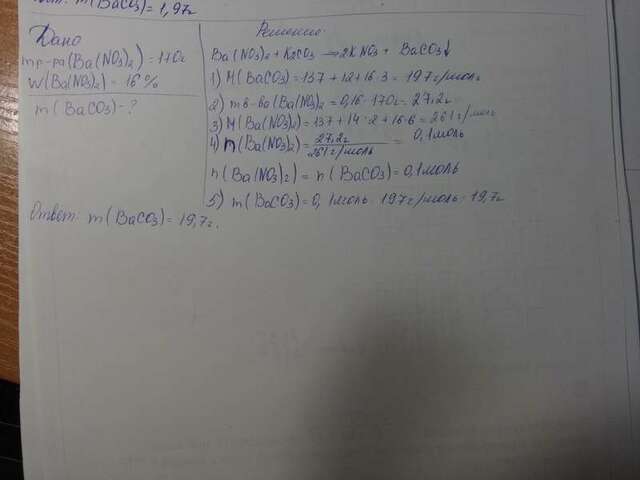 m(BaCO3) = 1,97г
Дано
mр-ра(Ba(NO3)2) = 170г
W(Ba(NO3)2) - 16%
m(BaCO3) - ?
Решение:
Ba(NO3)2 + K2CO3 → 2KNO3 + BaCO3↓
1) M(BaCO3) = 137 + 12 + 16·3 = 197г/моль
2) mв-ва(Ba(NO3)2 = 0,16·170г = 27,2г
3) M(Ba(NO3)2) = 137 + 14·2 + 16·6 = 261г/моль
4) n(Ba(NO3)2) = 27,2г / 261г/моль = 0,1моль
n(Ba(NO3)2) = n(BaCO3) = 0,1моль
5) m(BaCO3) = 0,1моль · 197г/моль = 19,7г
Ответ: m(BaCO3) = 19,7г.